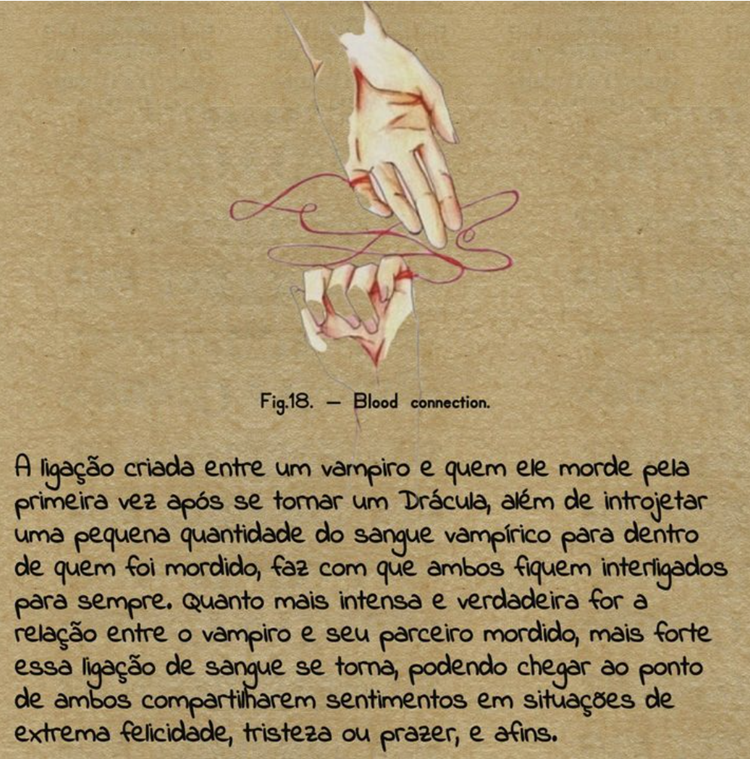 Fig.18. – Blood connection.
A ligação criada entre um vampiro e quem ele morde pela
primeira vez após se tornar um Drácula, além de introjetar
uma pequena quantidade do sangue vampírico para dentro
de quem foi mordido, faz com que ambos fiquem interligados
para sempre. Quanto mais intensa e verdadeira for a
relação entre o vampiro e seu parceiro mordido, mais forte
essa ligação de sangue se torna, podendo chegar ao ponto
de ambos compartilharem sentimentos em situações de
extrema felicidade, tristeza ou prazer, e afins.